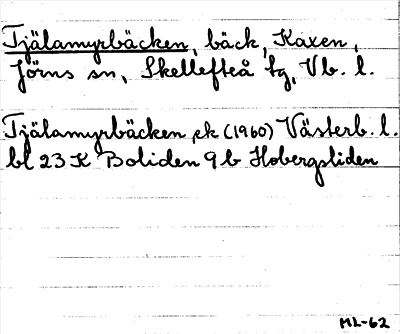 Tjälamyrbäcken, bäck, Kaxen,
Jörns sn, Skellefteå tg, Vb. l.
Tjälamyrbäcken, ek (1960) Västerb. l.
bl 23 K Boliden 9 b Hobergsliden
ML-62